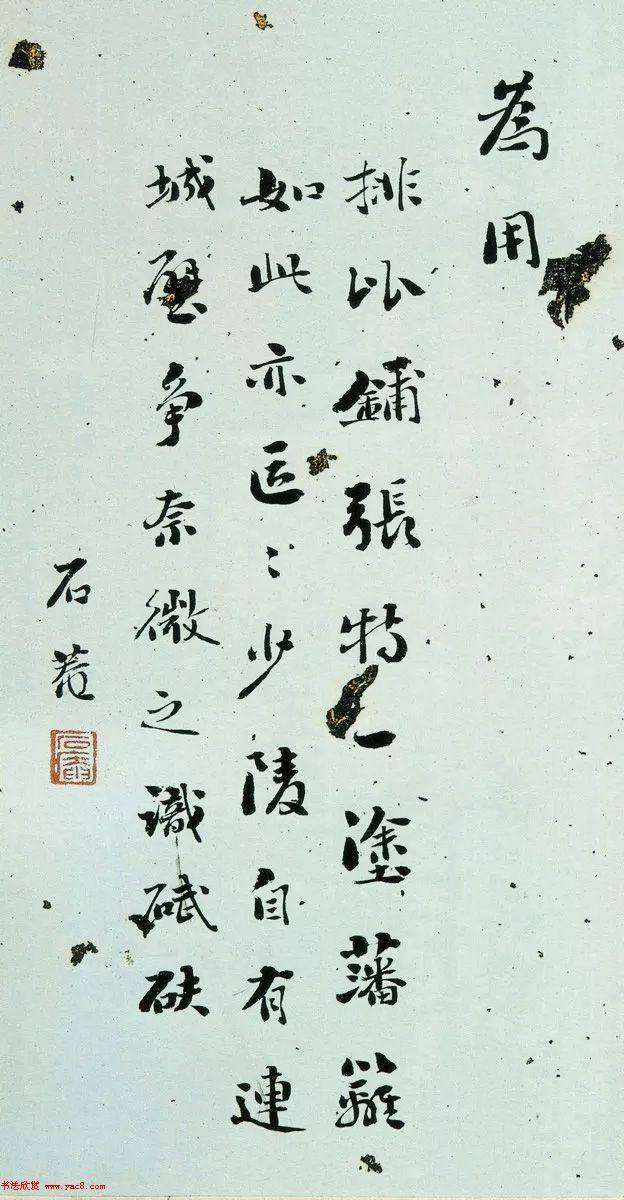 為用
排比鋪張特一塗藩籬
如此亦區〻少陵自有連
城璧争奈微之識碔砆
石菴
书法欣赏 www.yac8.com